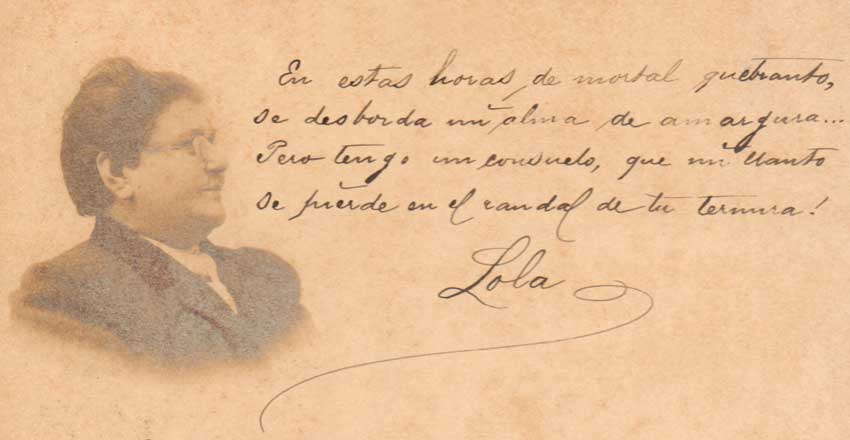 En estas horas de mortal quebranto,
se desborda mi alma de amargura...
Pero tengo un consuelo, que mi llanto
se pierde en el raudal de tu ternura!
Lola